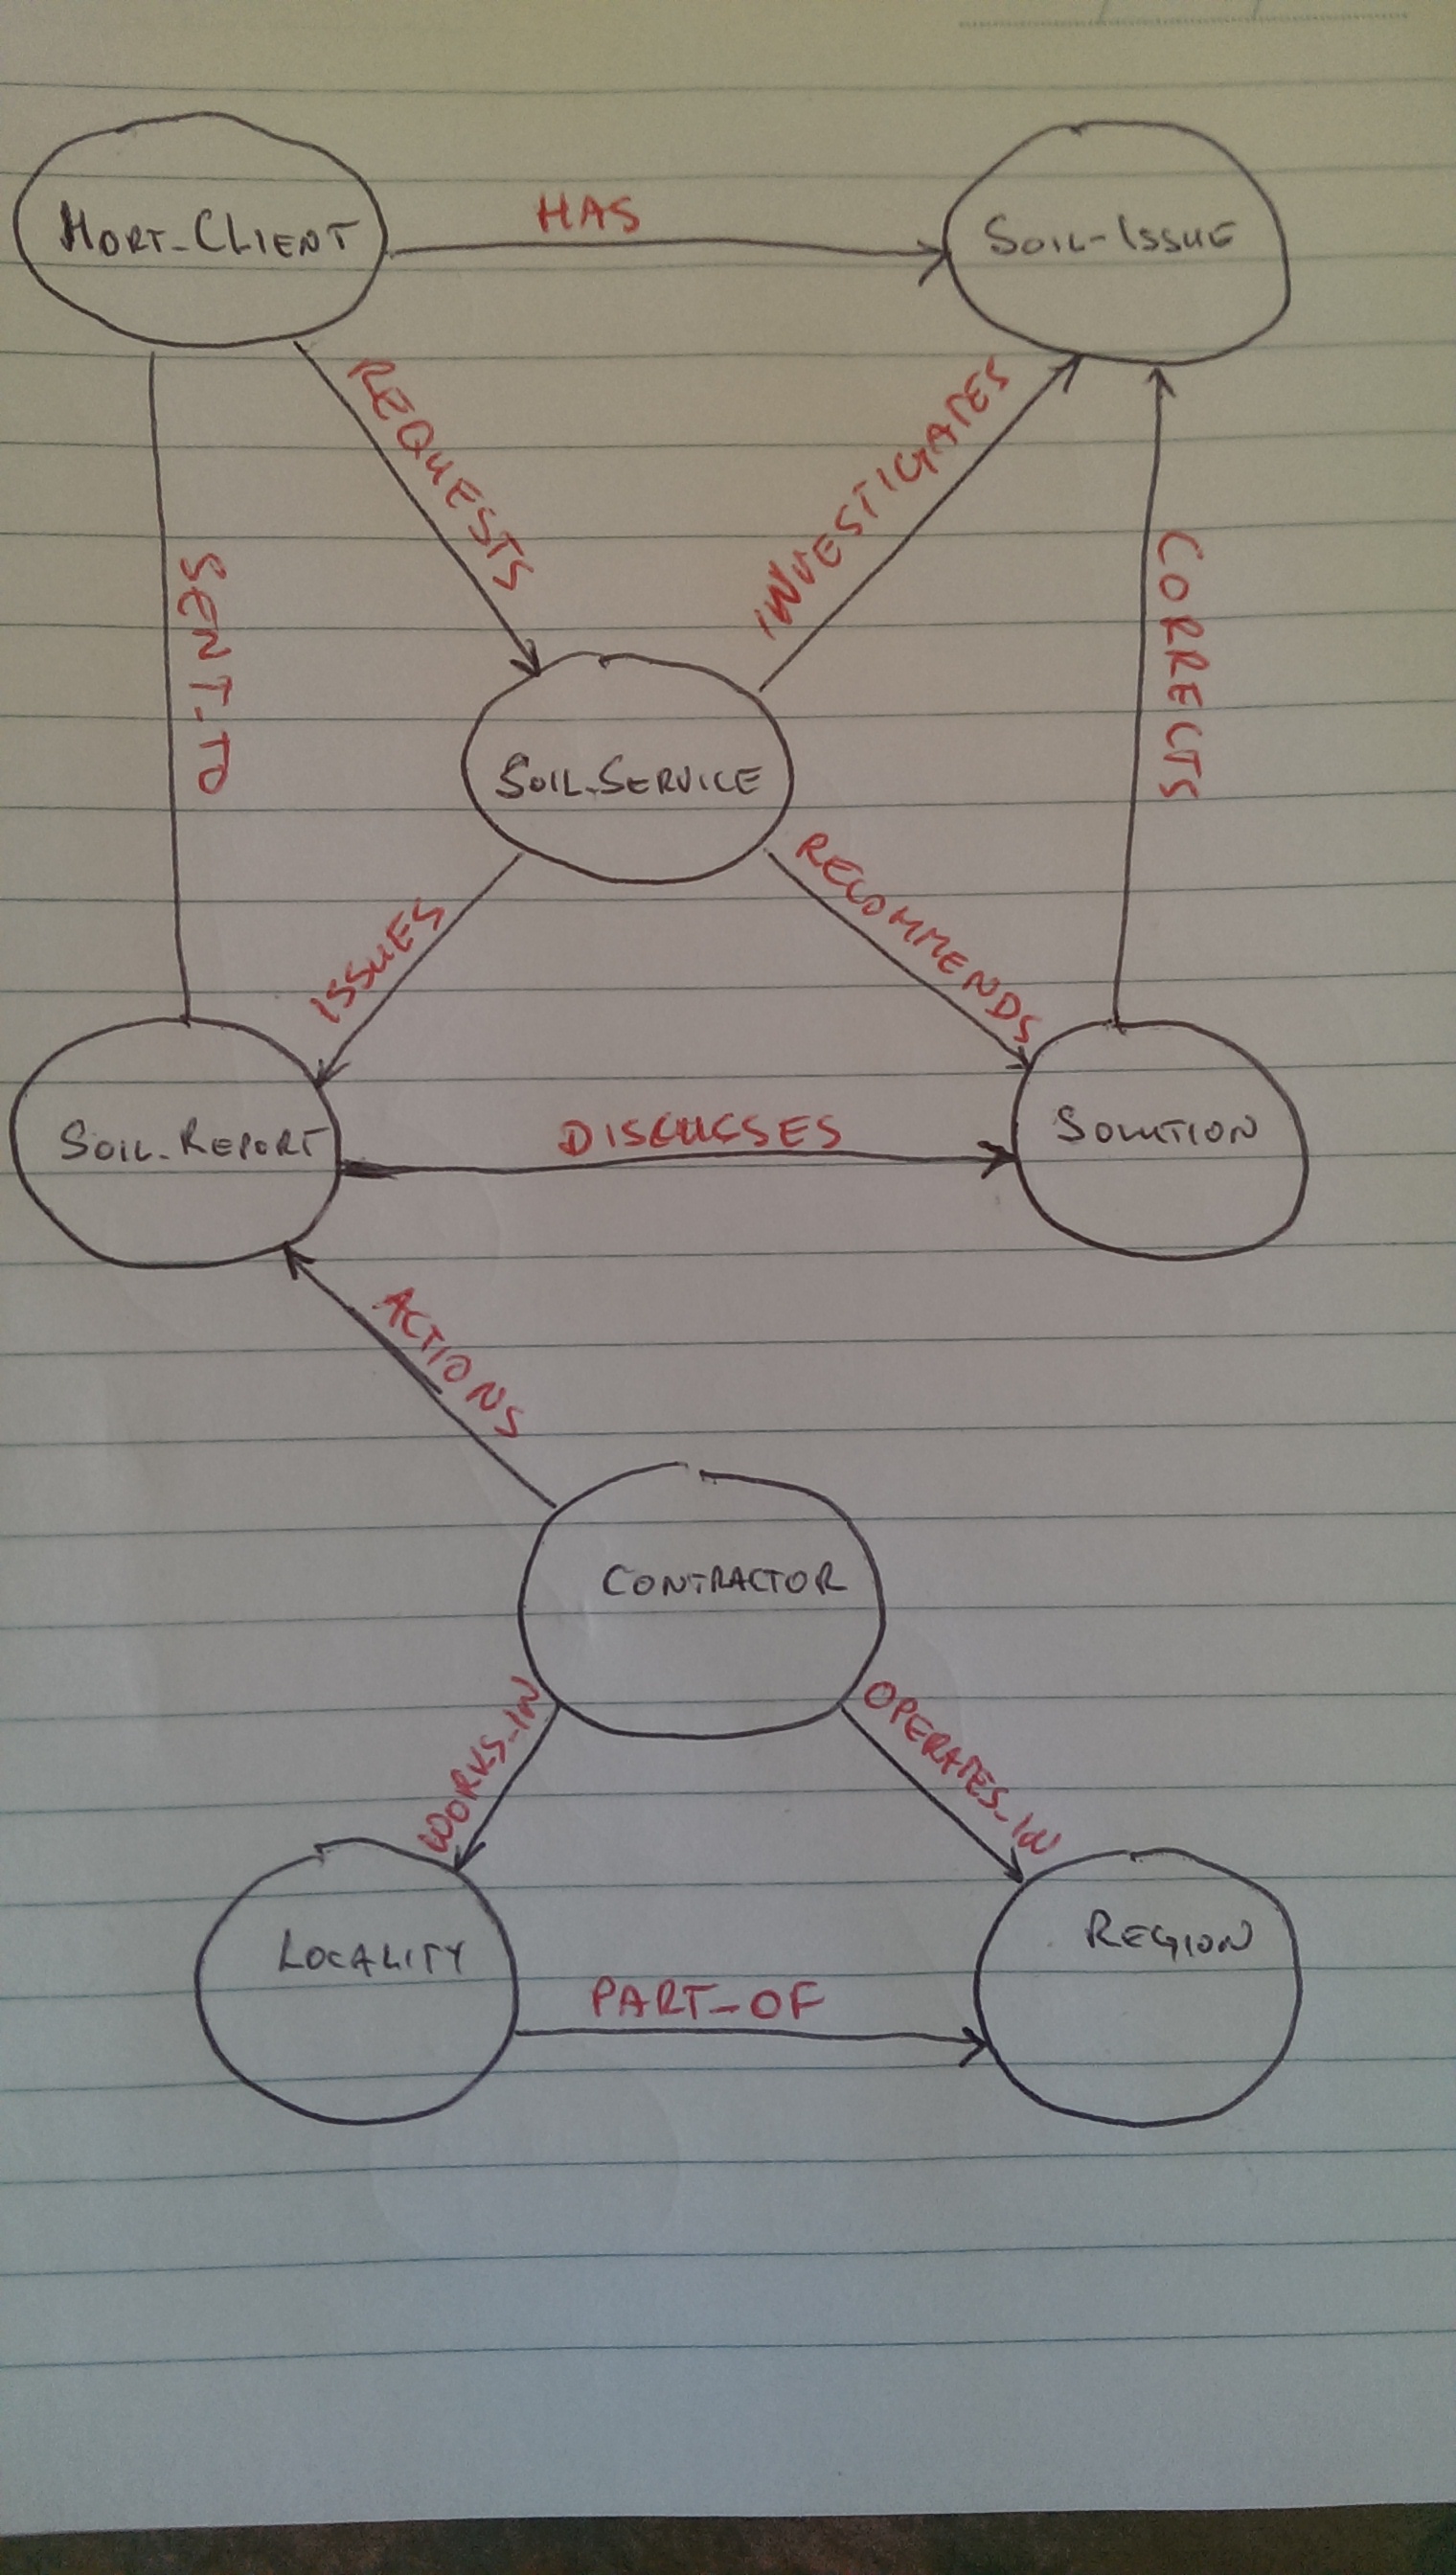 HORT_CLIENT
HAS
SOIL-ISSUE
REQUESTS
INVESTIGATES
SENT_TO
CORRECTS
SOIL_SERVICE
ISSUES
RECOMMENDS
SOIL_REPORT
DISCUSSES
SOLUTION
ACTIONS
CONTRACTOR
WORKS_IN
OPERATES_IN
LOCALITY
PART_OF
REGION